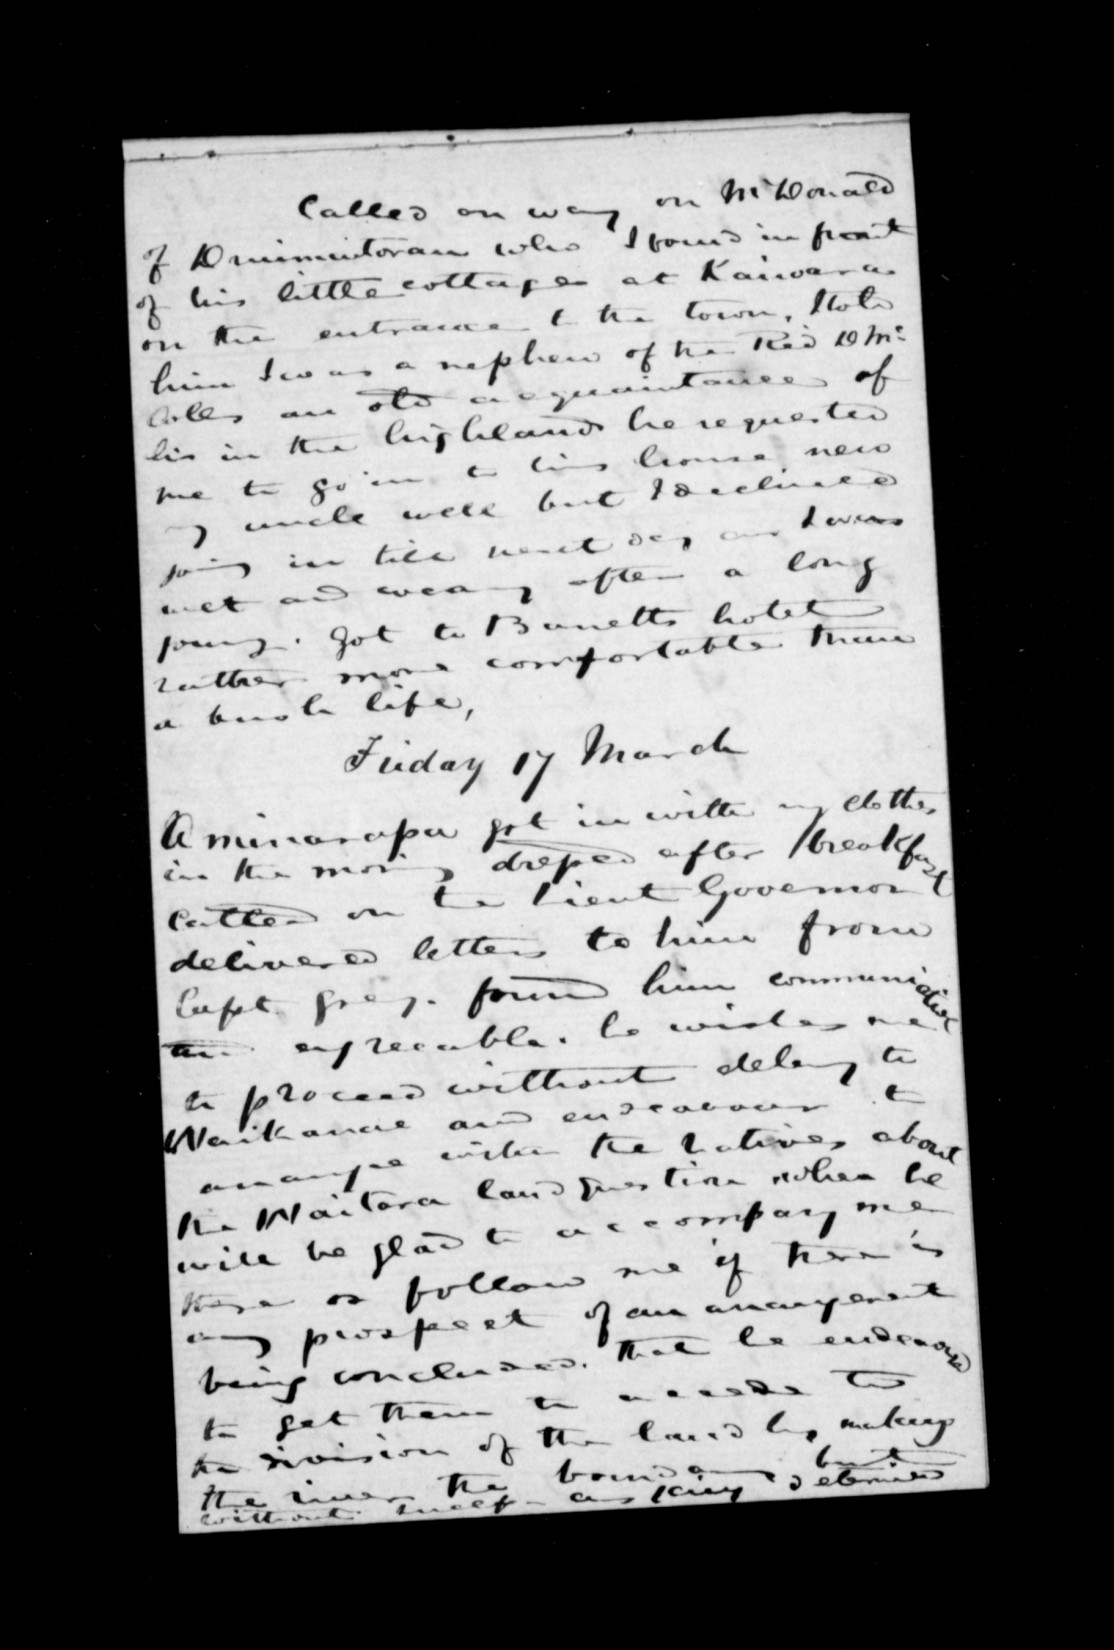 Called on way on McDonald
of Drimintoran who I found in front
of his little cottage at Kaiwara
on the entrance to the town, I told
him I was a nephew of the Revd D Mc
Coll an old acquaintance of
his in the highlands he requested
me to go in to his house new
my uncle well but I declined
going in till next day as I was
wet and weary after a long
journey. Got to Barretts hotel
rather more comfortable than
a bush life,
Friday 17 March
Aminarapa got in with my clothes
in the morning dressed after breakfast
called on the Lieut Governor
delivered letters to him from
Capt. Grey. found him communicative
and agreeable. he wishes me
to proceed without delay to
Waikanae and endeavour to
arrange with the natives about
the Waitara land question when he
will be glad to accompany me
there or follow me if there is
any prospect of an arrangement
being concluded. that he endeavored
to get them to accede to
the division of the land by making
the river the boundary but
without success as King determined